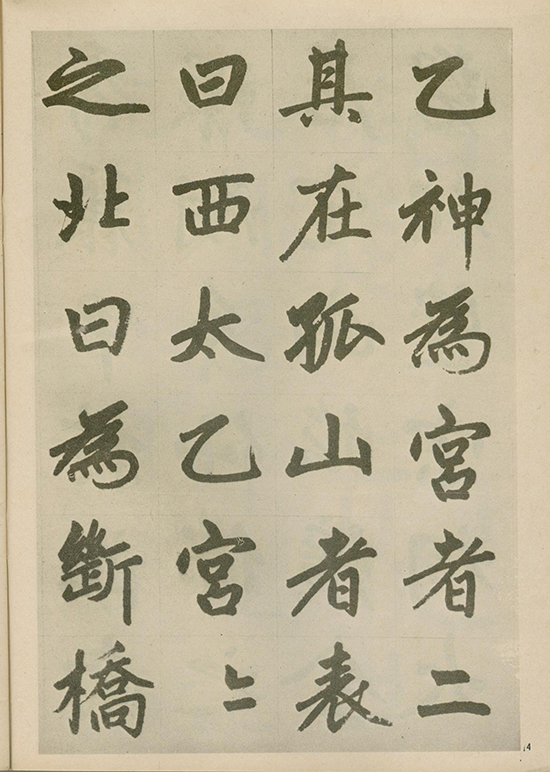 乙神為宮者二
其在孤山者表
曰西太乙宮〻
之北曰為斷橋
4